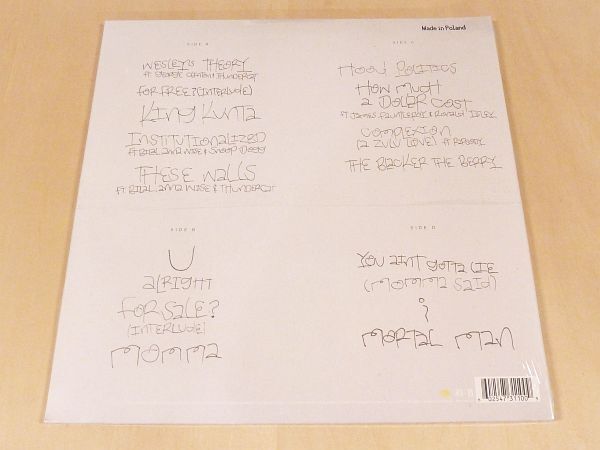 Made in Poland
SIDE A
WESLEY'S THEORY
ft GEORGE CLINTON & THUNDERCAT
FOR FREE? (INTERLUDE)
KING KUNTA
INSTITUTIONALIZED
ft BILAL, anna WISE & SNOOP DOGG
THESE WALLS
ft BILAL, anna WISE & THUNDERCAT
SIDE B
U
aLRIGHT
FOR SALE?
(INTERLUDE)
MOMMA
SIDE C
HOOD POLITICS
HOW MUCH
a DOLLAR COST
ft JAMES FAUNTLEROY & RONALD ISLEY
COMPLEXION
(a ZULU LOVE) ft RAPSODY
THE BLACKER THE BERRY
SIDE D
YOU aINT GOTTA LIE
(MOMMA SaID)
i
MORTAL MAN
02547 31100